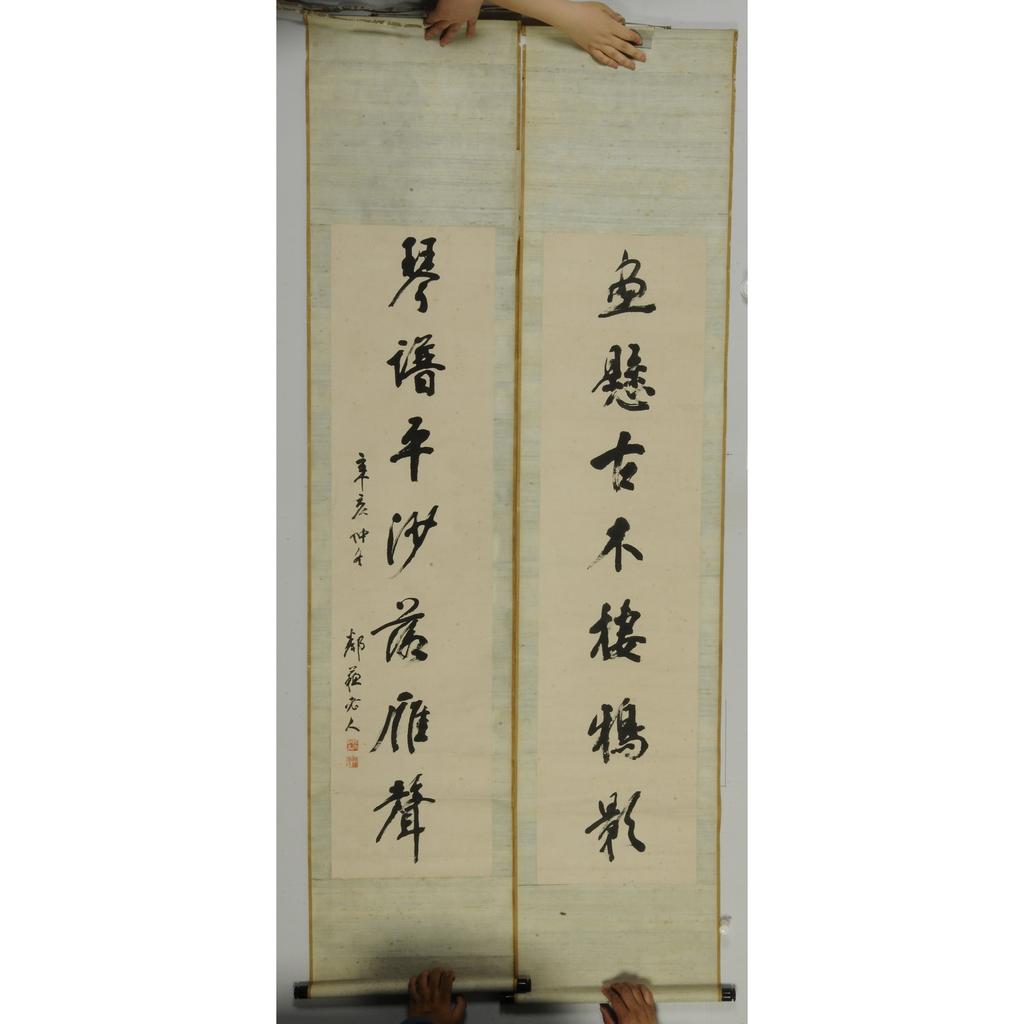 畫懸古木棲鴉影
琴譜平沙落雁聲
辛亥仲冬
鄰蘓老人